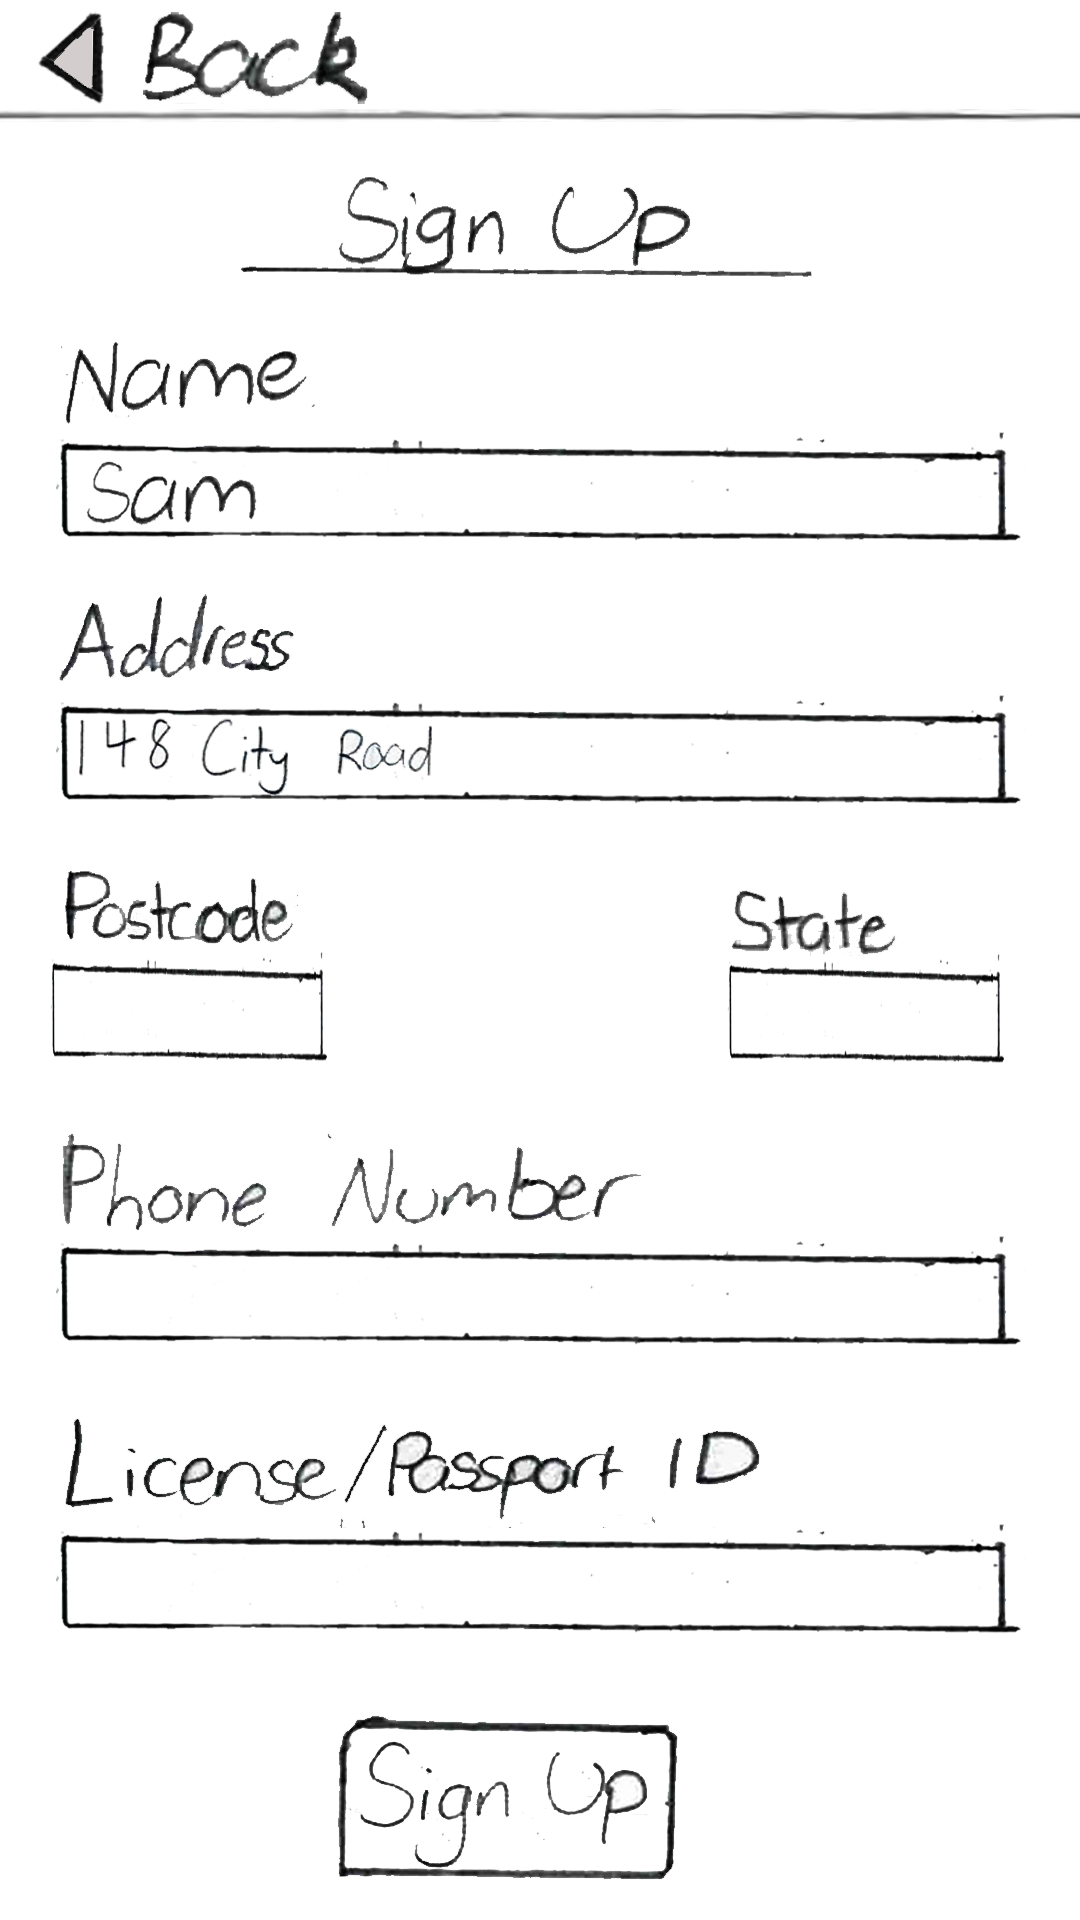 Back
Sign Up
Name
Sam
Address
148 City Road
Postcode State
Phone Number
License/Passport ID
Sign Up